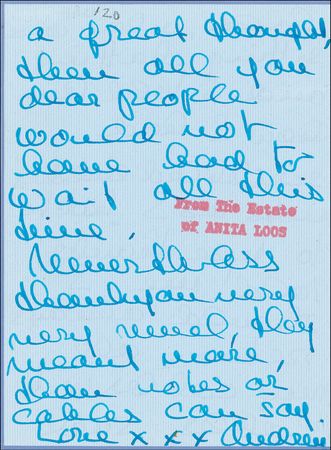 120
a great thought,
then all you
dear people
would not
have had to
wait all this
time.
From The Estate
of ANITA LOOS
Neverdless
thankyou very
very much, they
meant more,
than notes or
cables can say.
Love x x x Audrey